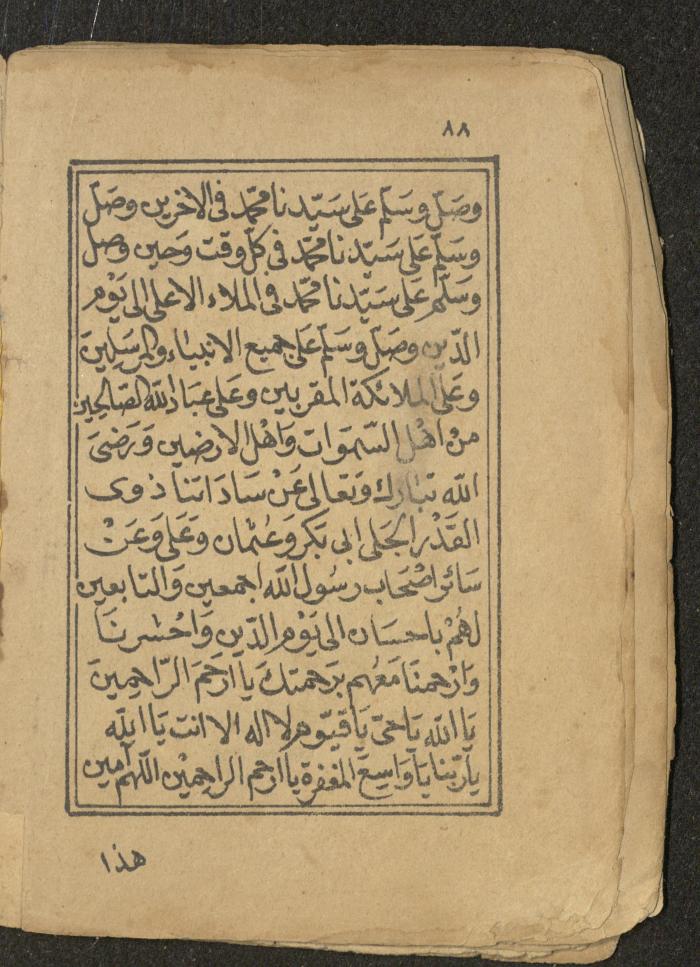 ٨٨
وصَلّ وسَلّم عَلى سَيّدنا محمّد فى الاخرين وصَلّ
وسَلّم عَلى سَيّدنا محمّد فى كلّ وقت وَحين وصل
وسَلّم عَلى سَيّدنا محمّد فى الملاء الاعلى الى يَوْم
الدّين وصَلّ وسَلّم عَلى جميع الانبياء والمرسَلِينَ
وعَلى الملائكة المقربين وعَلى عبَاد الله الصّالحين
منْ اهْل السّموَات وَاهْل الارضين وَرَضىَ
الله تبَارك وَتعَالى عَنْ سَادَاتنا ذوى
القَدْر الجَلى ابى بَكر وَعُثمان وَعَلى وَعَنْ
سَائر اصْحَاب رسُول الله اجمعين وَالتابعين
لهُمْ باحسَان الى يَوْم الدّين وَاحْشرنَا
وَارْحمنَا مَعَهم برَحمتكَ يَا ارْحَمَ الرّاحِمِينَ
يَا الله يَا حىّ يَا قيّوم لا اله الا انت يَا الله
يا رَبّنا يَا وَاسِعَ المغفرة يا ارحم الراحمِيْن اللّهم آمين
هذا